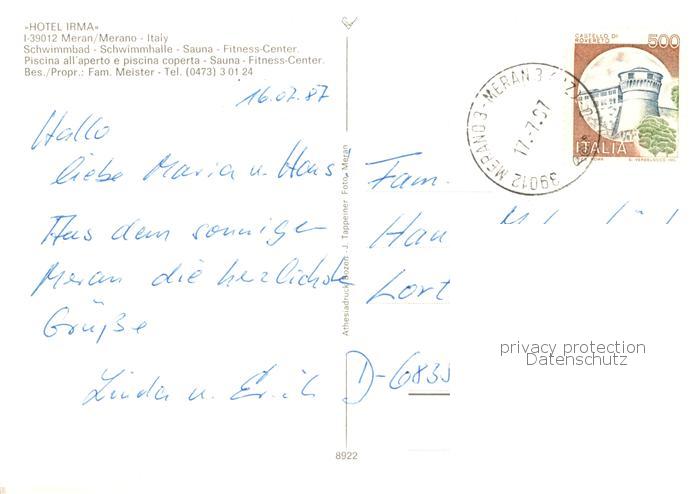 »HOTEL IRMA«
I-39012 Meran/Merano - Italy
Schwimmbad - Schwimmhalle - Sauna - Fitness-Center.
Piscina all'aperto e piscina coperta - Sauna - Fitness-Center.
Bes./Propr.: Fam. Meister - Tel. (0473) 3 01 24
16.07.87
Hallo
liebe Maria u. Hans
Aus dem sonnigen
Meran die herzlichste
Grüße
Linda u. Erich
Athesiadruck Bozen · J. Tappeiner Foto Meran
8922
CASTELLO DI
ROVERETO
500
ITALIA
39012 MERANO 3 - MERAN 3
17.-7.87
Fam.
Han
Lort
D-6833
privacy protection
Datenschutz